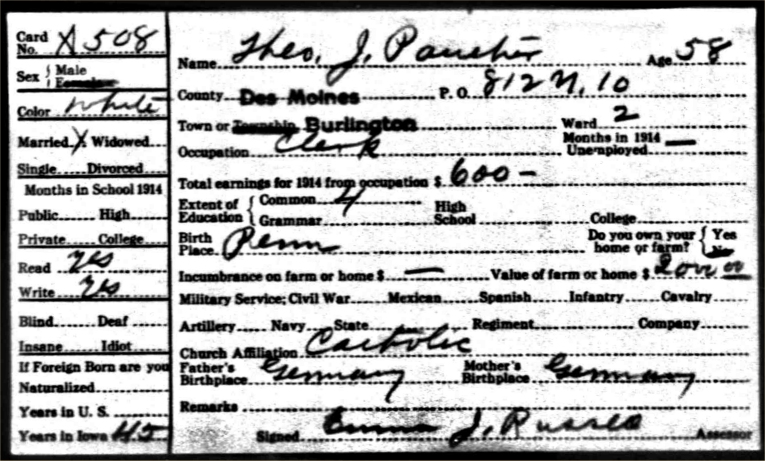 Card No. A508
Sex { Male
Female
Color White
Married X Widowed
Single Divorced
Months in School 1914
Public High
Private College
Read yes
Write yes
Blind Deaf
Insane Idiot
If Foreign Born are you
Naturalized
Years in U. S.
Years in Iowa 45
Name Theo. J. Age 58
County Des Moines P. O. 812 N. 10
Town or Township Burlington Ward 2
Occupation Clerk Months in 1914 Unemployed —
Total earnings for 1914 from occupation $ 600 –
Extent of Education { Common 4 High School College
Grammar
Birth Place Penn Do you own your home or farm? { Yes
No
Incumbrance on farm or home $ — Value of farm or home $ 2000 00
Military Service; Civil War Mexican Spanish Infantry Cavalry
Artillery Navy State Regiment Company
Church Affiliation Catholic
Father's Birthplace Germany Mother's Birthplace Germany
Remarks
Signed Emma J. Russel Assessor